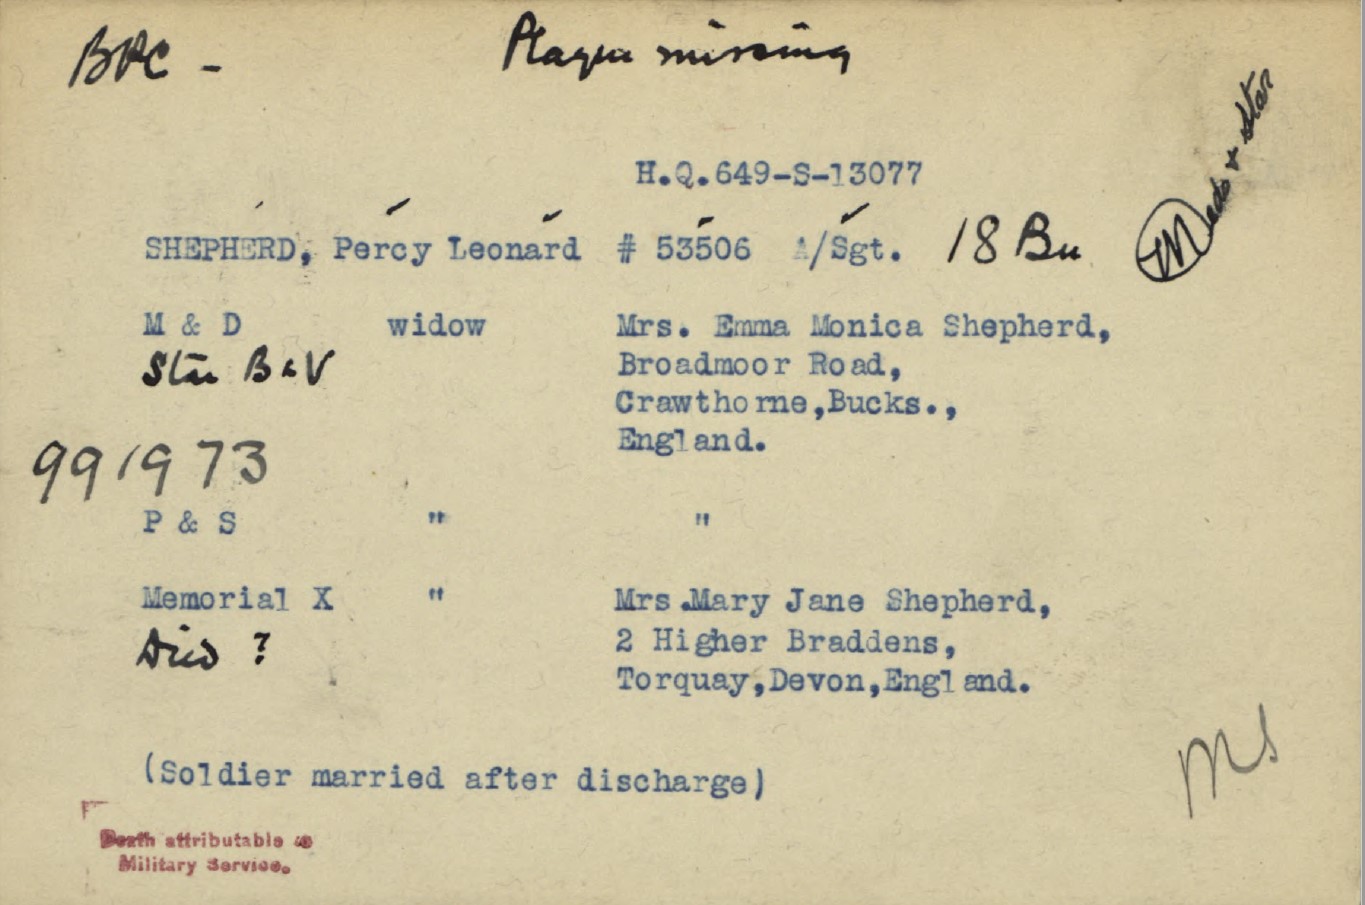 BPC -
Plaque missing
Meds & Star
H.Q.649-S-13077
SHEPHERD, Percy Leonard # 53506 A/Sgt. 18 Bn
M & D widow Mrs. Emma Monica Shepherd,
Star B & V Broadmoor Road,
Crawthorne,Bucks.,
England.
991973
P & S " "
Memorial X " Mrs.Mary Jane Shepherd,
Died ? 2 Higher Braddens,
Torquay,Devon,England.
(Soldier married after discharge)
Death attributable to
Military Service.